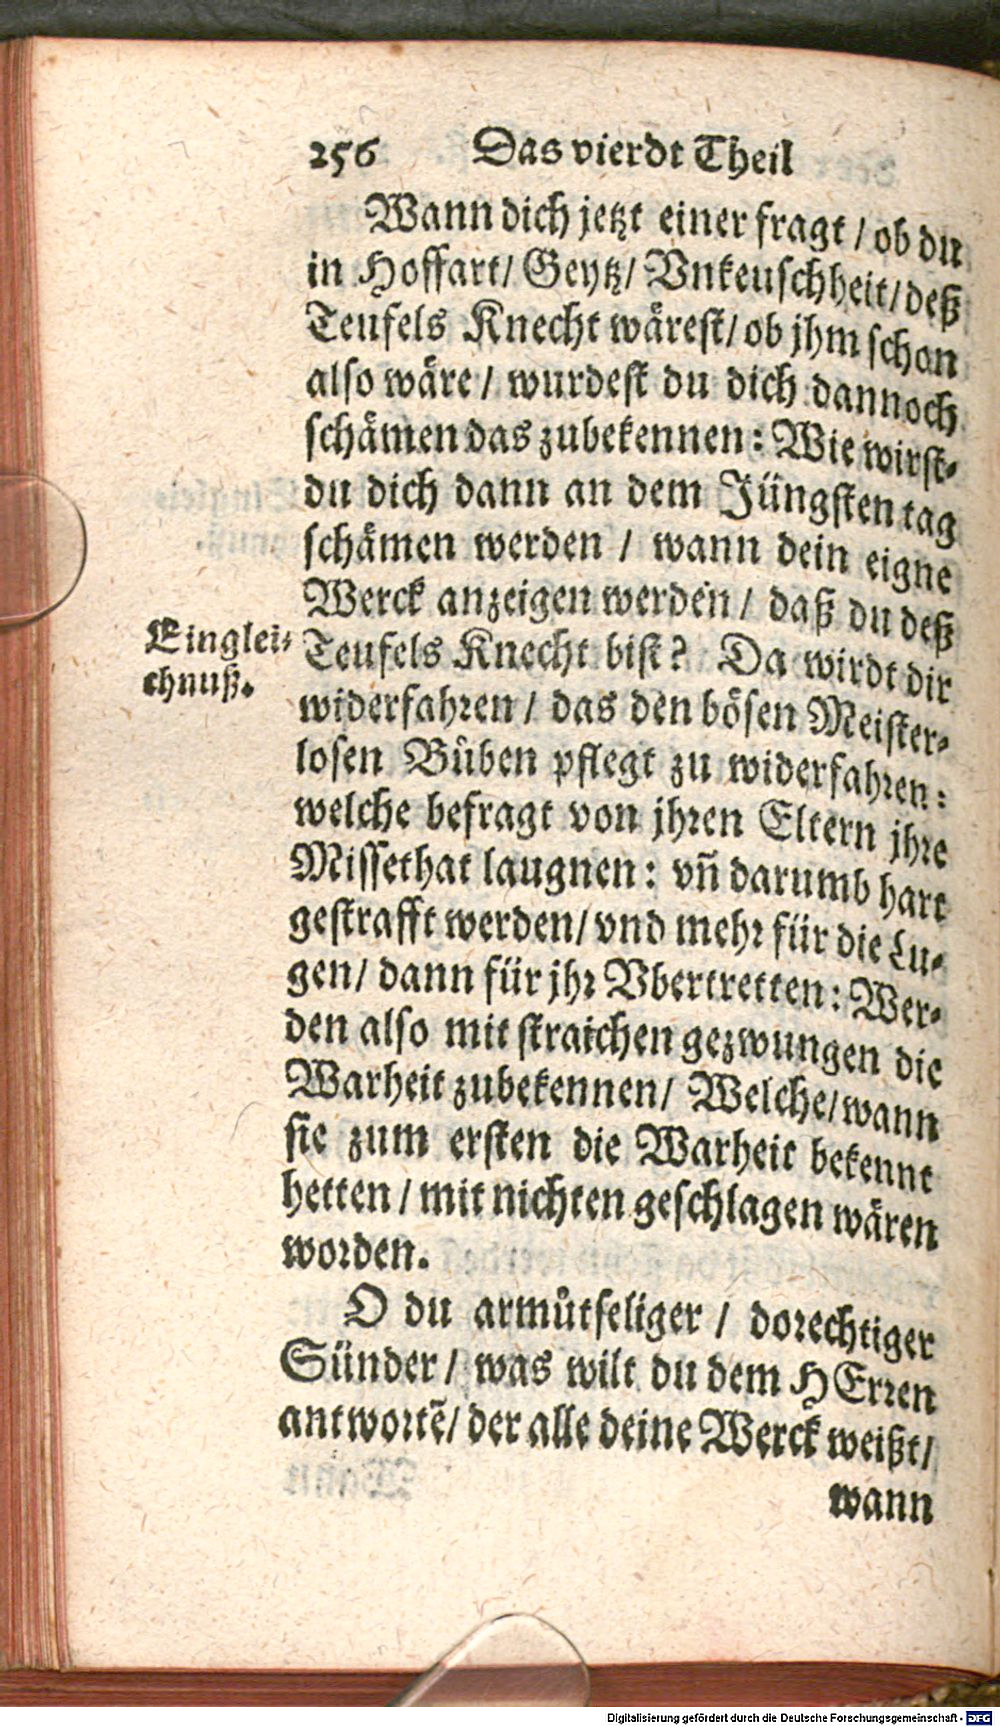 256 Das vierdt Theil
Wann dich jetzt einer fragt / ob du
in Hoffart/ Geytz/ Vnkeuschheit/ deß
Teufels Knecht wärest/ ob jhm schon
also wäre / wurdest du dich dannoch
schämen das zubekennen: Wie wirst-
du dich dann an dem Jüngsten tag
schämen werden / wann dein eigne
Werck anzeigen werden / daß du deß
Einglei-
chnuß.
Teufels Knecht bist? Da wirdt dir
widerfahren / das den bösen Meister-
losen Bůben pflegt zu widerfahren:
welche befragt von jhren Eltern jhre
Missethat laugnen: vñ darumb hart
gestrafft werden/ vnd mehr für die Lu-
gen/ dann für jhr Vbertretten: Wer-
den also mit straichen gezwungen die
Warheit zubekennen/ Welche/ wann
sie zum ersten die Warheit bekennt
hetten / mit nichten geschlagen wären
worden.
O du armůtseliger / dorechtiger
Sünder / was wilt du dem HErren
antwortẽ/ der alle deine Werck weißt/
wann
Digitalisierung gefördert durch die Deutsche Forschungsgemeinschaft - DFG